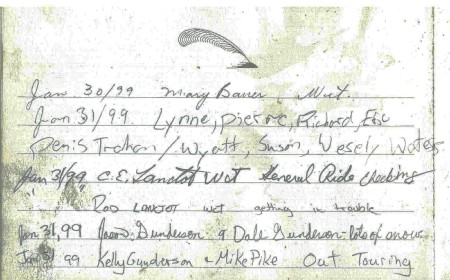 Jan. 30/99 Mary Bauer Wct.
Jan 31/99. Lynne, Pierre, Richard, Eric
Denis Trahan / Wyatt, Susan, Wesely Waters
Jan 31/99 C.E. Lanstot Wct General Ride Checking
" " Rod Lanstot wct getting in trouble
Jan 31, 99 Joan Gunderson & Dale Gunderson - lots of snow
Jan 31 99 Kelly Gunderson & Mike Pike Out Touring